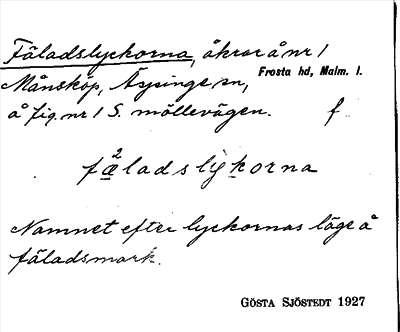 Fäladslyckorna, åkrar å nr 1
Frosta hd, Malm. l.
Månsköp, Äspinge sn,
å fig. nr 1 S. möllevägen. f.
fæ²ladslykorna
Namnet efter lyckornas läge å
fäladsmark.
GÖSTA SJÖSTEDT 1927